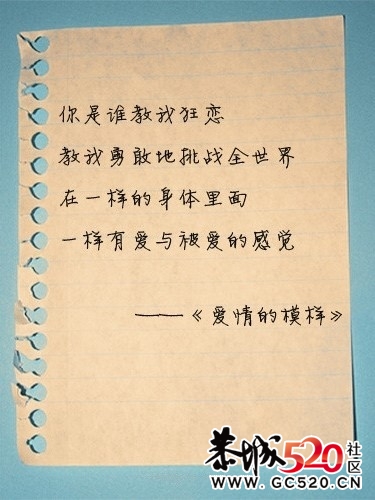 你是谁教我狂恋
教我勇敢地挑战全世界
在一样的身体里面
一样有爱与被爱的感觉
——《爱情的模样》
恭城520社区
WWW.GC520.CN